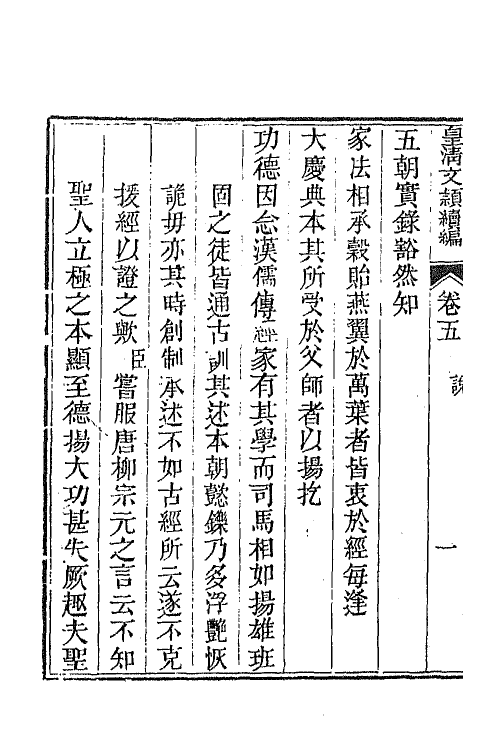 皇清文頴續編 卷五 說 一
五朝實錄豁然知
家法相承穀貽燕翼於萬葉者皆衷於經每逢
大慶典本其所受於父師者以揚扢
功德因念漢儒傳經家有其學而司馬相如揚雄班
固之徒皆通古訓其述本朝懿鑠乃多浮艷恢
詭毋亦其時創制承述不如古經所云遂不克
援經以證之歟臣嘗服唐柳宗元之言云不知
聖人立極之本顯至德揚大功甚失厥趣夫聖